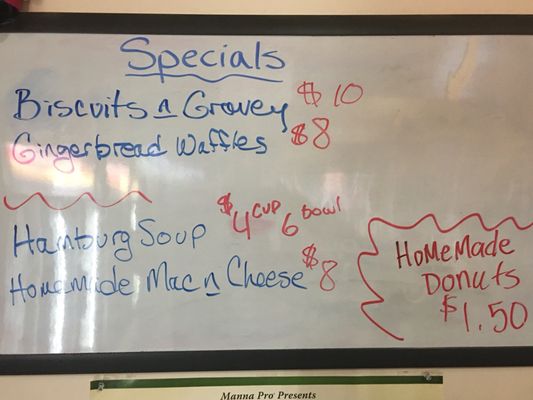 Specials
Biscuits n Gravey $10
Gingerbread Waffles $8
Hamburg Soup $4 cup 6 bowl
Homemade Mac n Cheese $8
HoMeMade
Donuts
$1.50
Manna Pro Presents